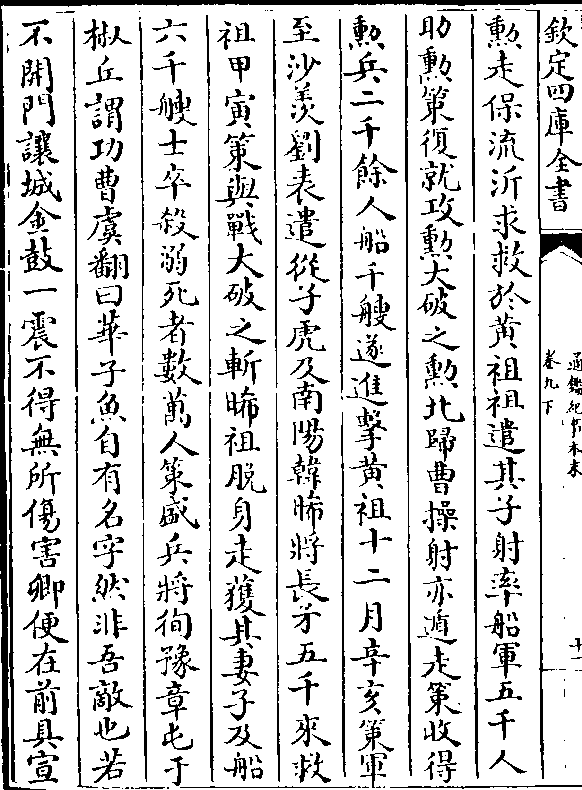 欽定四庫全書
通鑑紀事本末
卷九下
十二
勲走保流沂求救於黄祖祖遣其子射率船軍五千人
助勲策復就攻勲大破之勲北歸曹操射亦遁走策收得
勲兵二千餘人船千艘遂進擊黄祖十二月辛亥策軍
至沙羨劉表遣從子虎及南陽韓晞將長矛五千來救
祖甲寅策與戰大破之斬晞祖脫身走獲其妻子及船
六千艘士卒殺溺死者數萬人策盛兵將徇豫章屯于
椒丘謂功曹虞翻曰華子魚自有名字然非吾敵也若
不開門讓城金鼓一震不得無所傷害卿便在前具宣